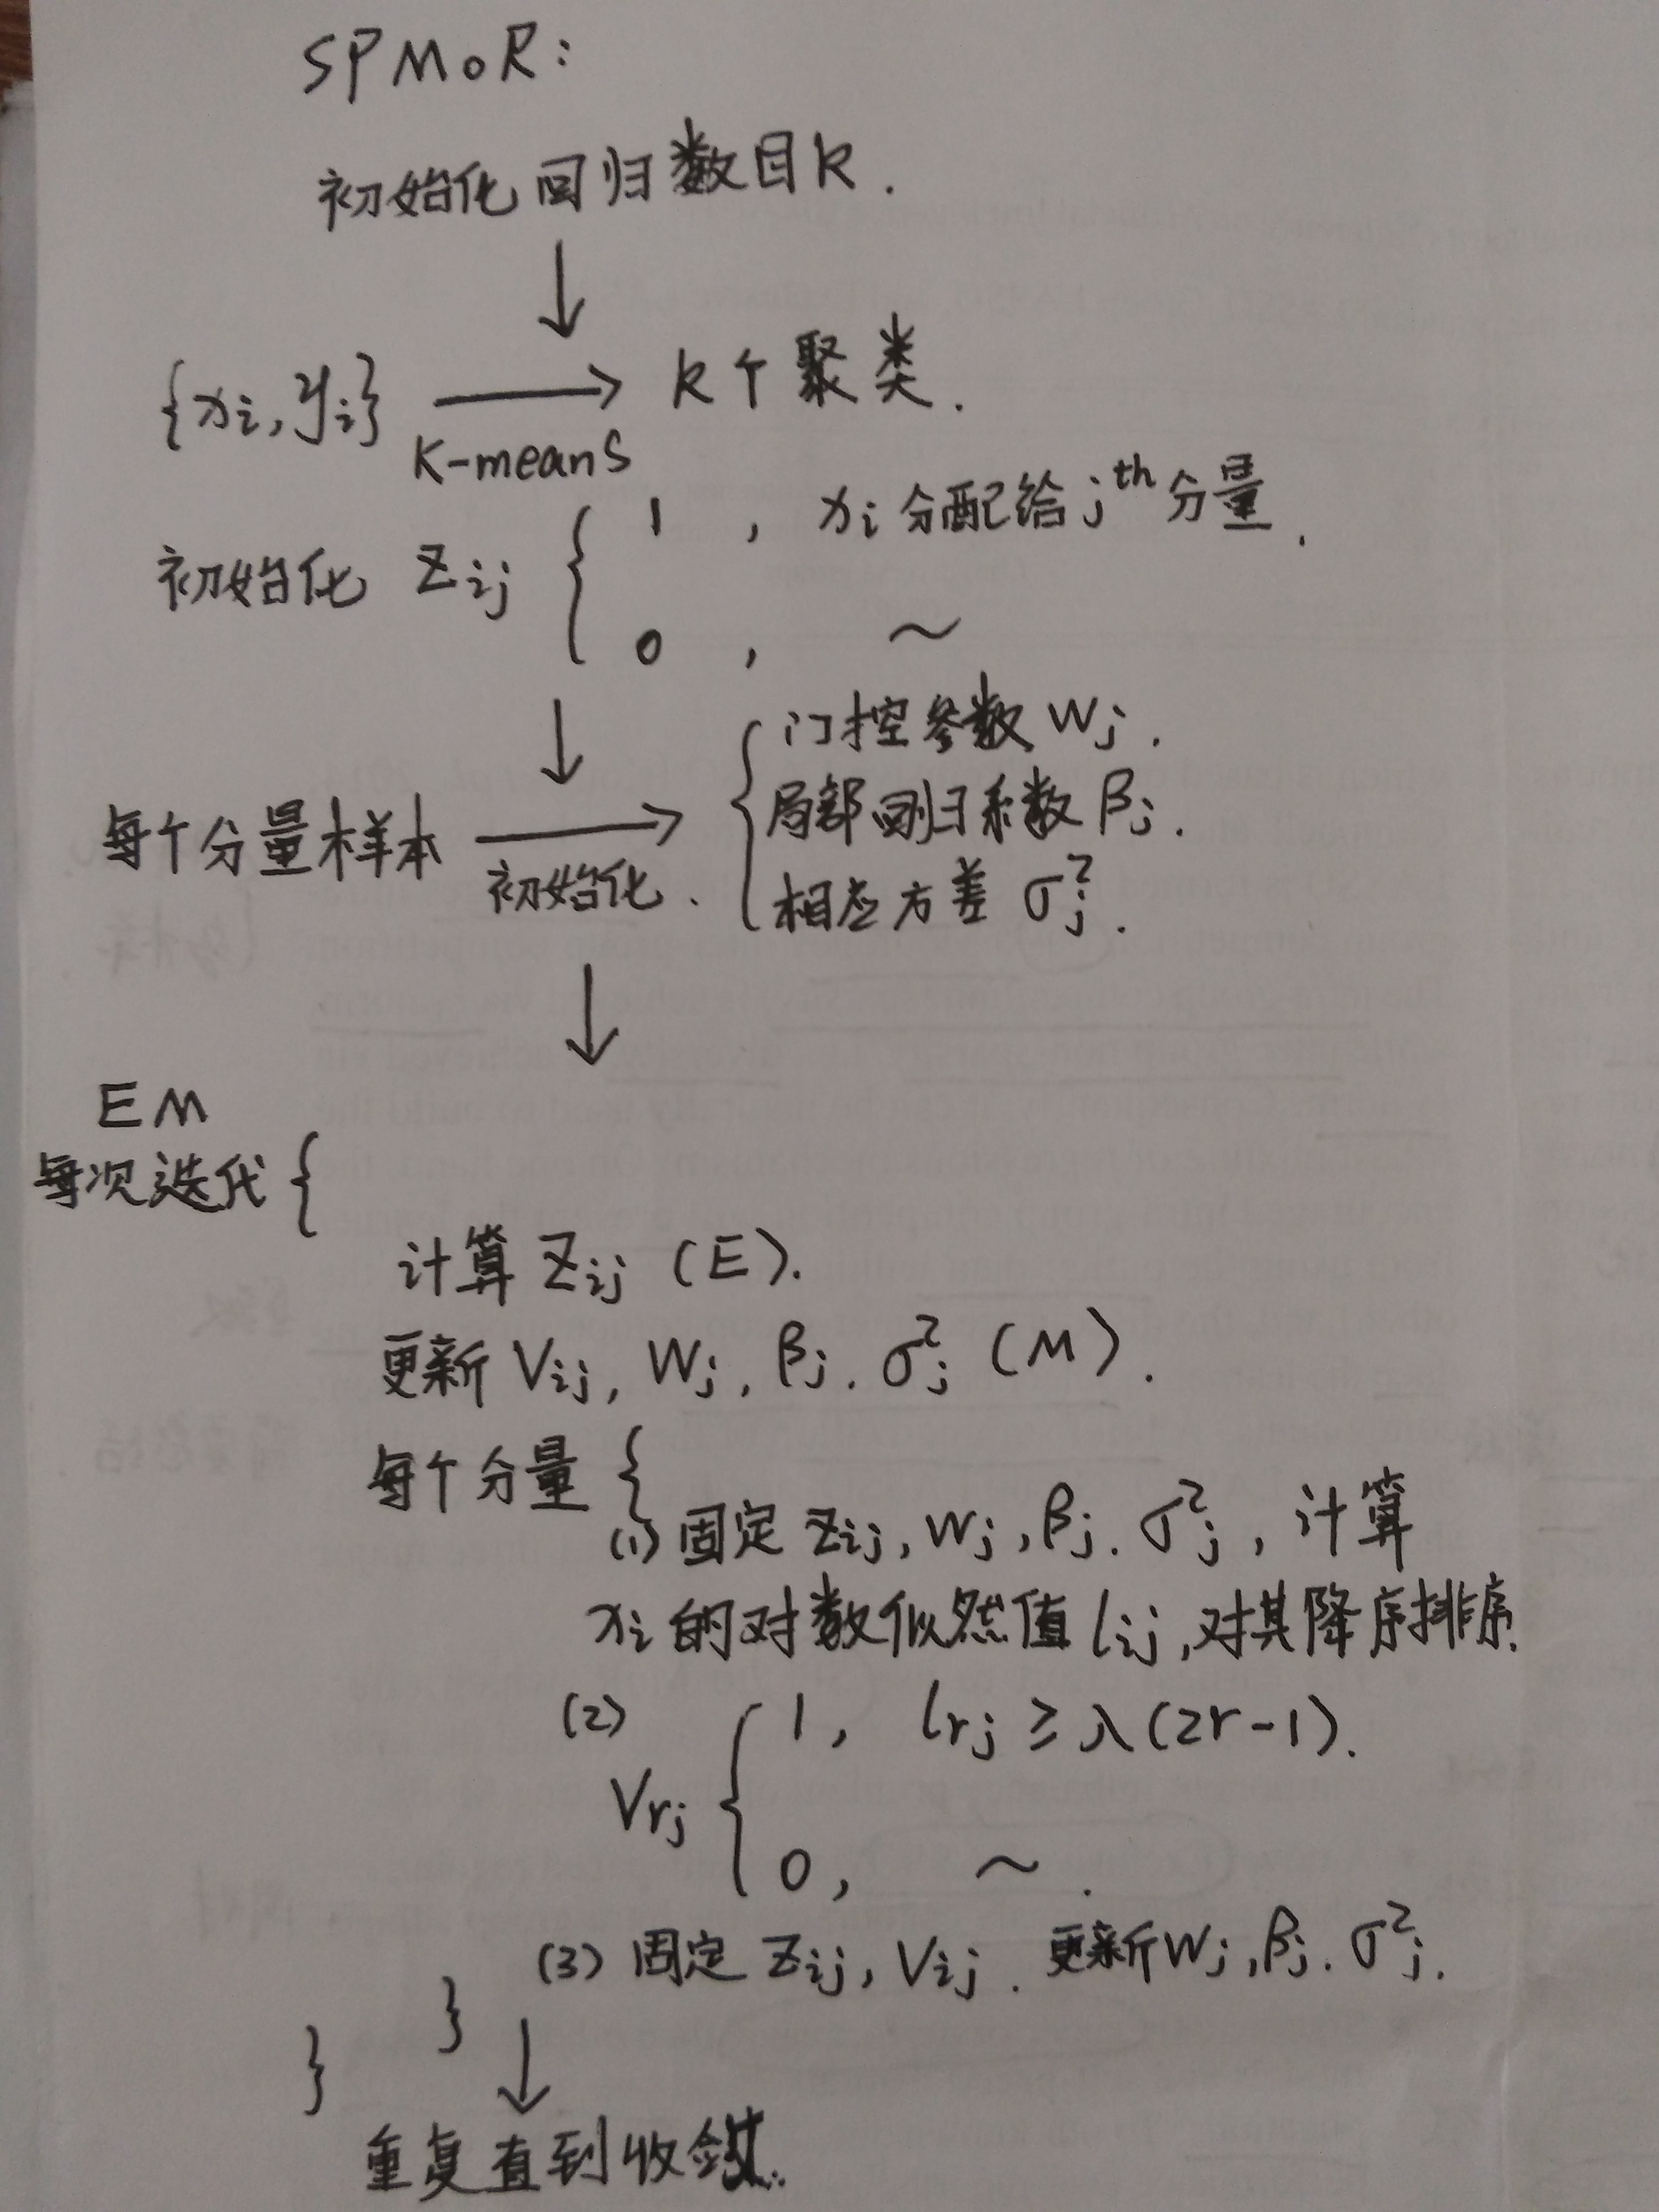 SPMoR:
初始化回归数目k.
{xi, yi} → k个聚类.
K-means
初始化 Zij { 1 , xi分配给j^th分量.
0 , ~
每个分量样本 → 初始化.
{ 门控参数 Wj.
局部回归系数 βj.
相应方差 σj².
EM
每次迭代 {
计算 Zij (E).
更新 Vij, Wj, βj. σj² (M).
每个分量 {
(1) 固定 Zij, Wj, βj. σj², 计算
xi的对数似然值 lij, 对其降序排序.
(2)
Vrj { 1, lrj ≥ λ(2r-1).
0, ~.
(3) 固定 Zij, Vij. 更新Wj, βj. σj².
}
}
↓
重复直到收敛.